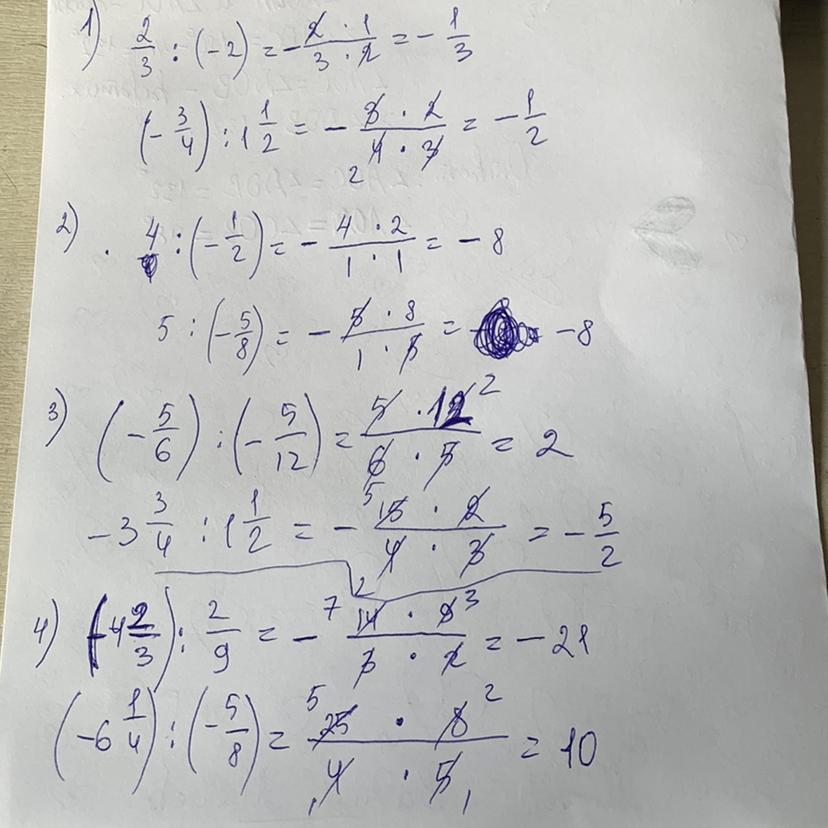 1) 2/3 : (-2) = - 2 · 1 / 3 · 2 = - 1/3
(- 3/4) : 1 1/2 = - 3 · 2 / 4 · 3 2 = - 1/2
2) · 4 : (- 1/2) = - 4 · 2 / 1 · 1 = - 8
5 : (- 5/8) = - 5 · 8 / 1 · 5 = -8
3) (- 5/6) : (- 5/12) = 5 · 12 2 / 6 · 5 = 2
-3 3/4 : 1 1/2 = - 5 15 · 2 / 4 · 3 2 = - 5/2
4) (-4 2/3) : 2/9 = - 7 14 · 9 3 / 3 · 2 = - 21
(-6 1/4) : (- 5/8) = 5 25 · 8 2 / 4 · 5 1 1 = 10